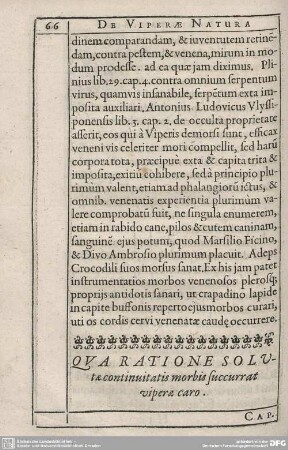 66
DE VIPERÆ NATURA
dinem comparandam, & iuventutem retinē-
dam, contra pestem, & venena, mirum in mo-
dum prodesse. ad ea quæ jam diximus. Pli-
nius lib. 29. cap. 4. contra omnium serpentum
virus, quamvis insanabile, serpētum exta im-
posita auxiliari, Antonius. Ludovicus Vlyssi-
ponensis lib. 3. cap. 2. de occulta proprietate
asserit, eos qui à Viperis demorsi sunt, efficax
veneni vis celeriter mori compellit, sed harū
corpora tota, præcipuè exta & capita trita &
imposita, exitiū cohibere, sed à principio plu-
rimùm valent, etiam ad phalangiorū ictus, &
omnib. venenatis experientia plurimùm va-
lere comprobatū fuit, ne singula enumerem,
etiam in rabido cane, pilos & cutem caninam,
sanguinē ejus potum, quod Marsilio Ficino,
& Divo Ambrosio plurimum placuit. Adeps
Crocodili suos morsus sanat, Ex his jam patet
instrumentatios morbos venenosos plerosq;
proprijs antidotis sanari, ut crapadino lapide
in capite buffonis reperto ejus morbos curari,
uti os cordis cervi venenatæ caudę occurrere.
QVA RATIONE SOLV-
tæ continuitatis morbis succurrat
viperæ caro.
CAP.
DFG